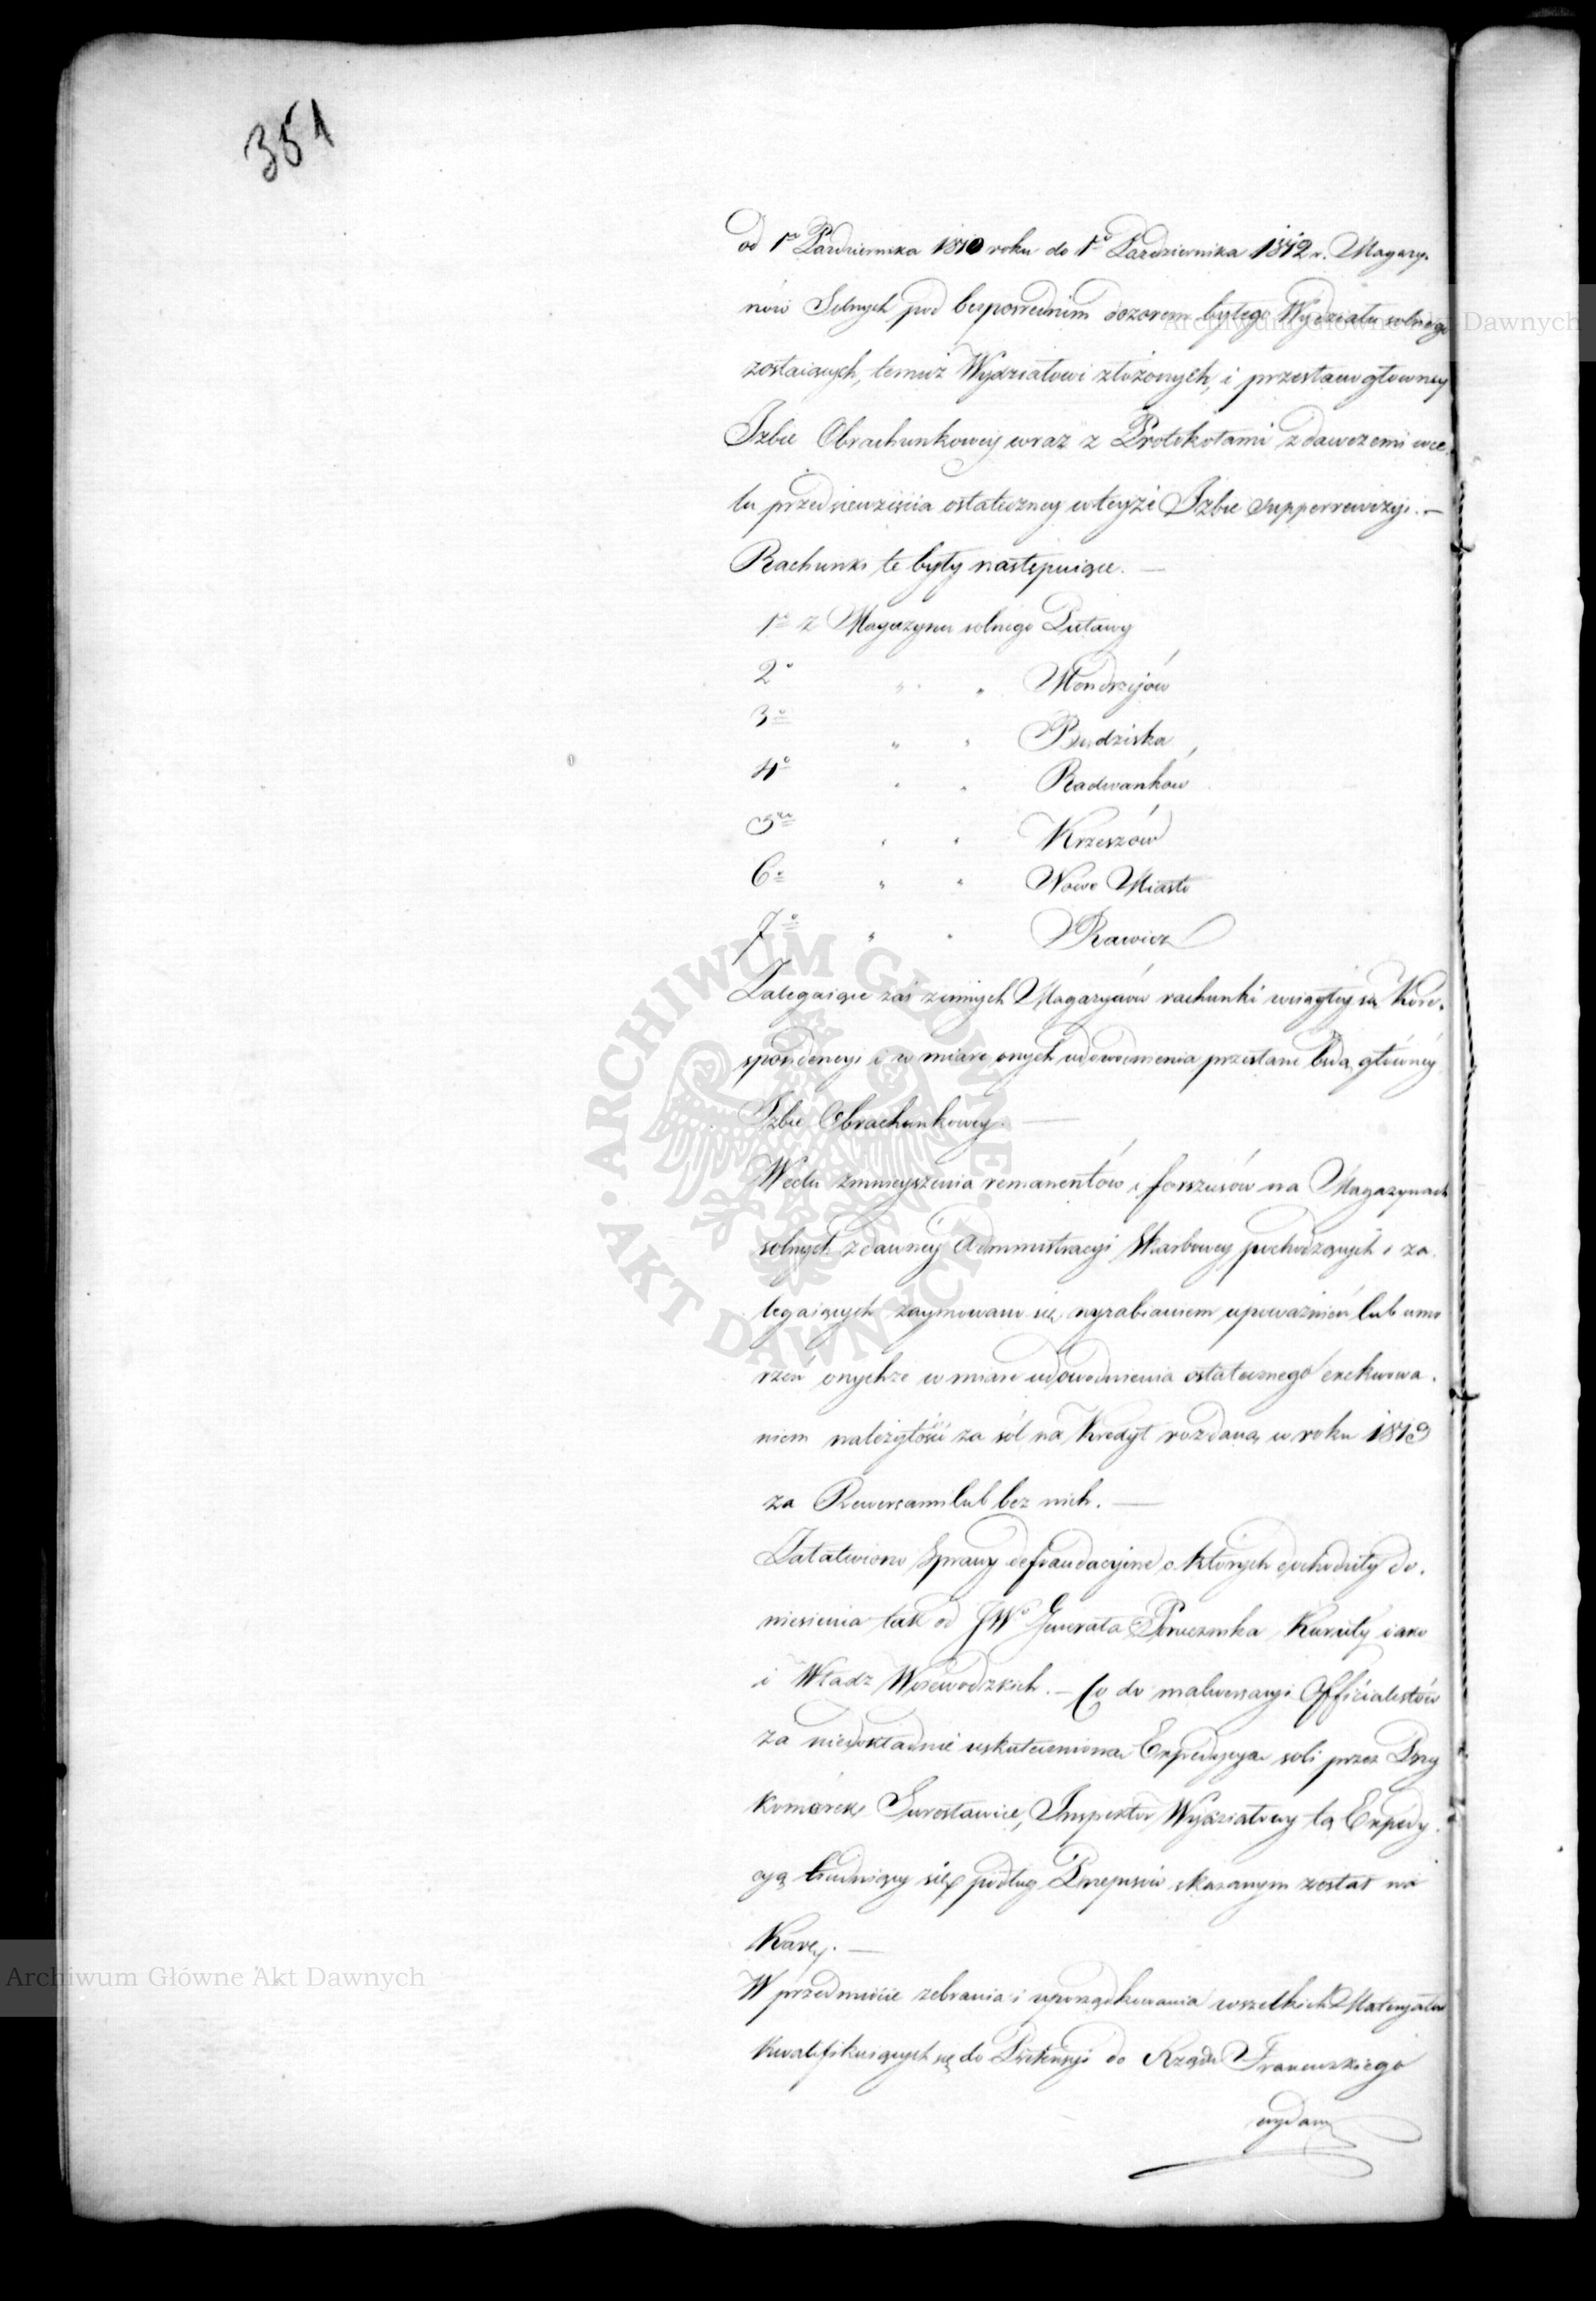 351
od 1o Października 1810 roku do 1o Października 1812 r. Magazy-
nów Solnych pod bezpośrednim dozorem byłego Wydziału solnego
zostaiących, temuż Wydziałowi złożonych, i przesłano główney
Izbie Obrachunkowey wraz z Protokołami zdawczemi w ce-
lu przedsiewzięcia ostateczney w teyże Izbie Supperrewizyi. —
Rachunki te były następuiące. —
1o z Magazynu solnego Puławy
2o " " Mondrzejów
3o " " Budziska
4o " " Radwanków
5o " " Krzeszów
6o " " Nowe Miasto
7o " " Rawicz
Zalegaiące zaś z innych Magazynów rachunki w ciągłey są Kore-
spondencyi i w miarę onych udowodnienia przesłane będą główney
Izbie Obrachunkowey. —
W celu zmnieyszenia remanentów i forszusów na Magazynach
solnych z dawney Administracyi Skarbowey pochodzących i za-
legaiących zaymowano się wyrabianiem upoważnień lub umo-
rzeń onychże w miarę udowodnienia ostatecznego exekwowa-
niem należytości za sól na Kredyt rozdaną w roku 1813
za Rewersami lub bez nich. —
Załatwiono Sprawy defraudacyjne o których dochodziły do-
niesienia tak od JWo Generała Porucznika Kuruty iako
i Władz Woiewodzkich. — Co do malwersacyi Officialistów
za niedokładnie uskutecznioną Expedycyą soli przez Przy
komórek Inspektor Wydziałowy tą Expedy-
cyą trudniący się podług Przepisów skazanym został na
Karę. —
W przedmiocie zebrania i uporządkowania wszelkich Materyałów
kwalifikuiących się do Pretensyi do Rządu Francuskiego
wydany
Archiwum Główne Akt Dawnych
Archiwum Główne Akt Dawnych
ARCHIWUM GŁÓWNE AKT DAWNYCH